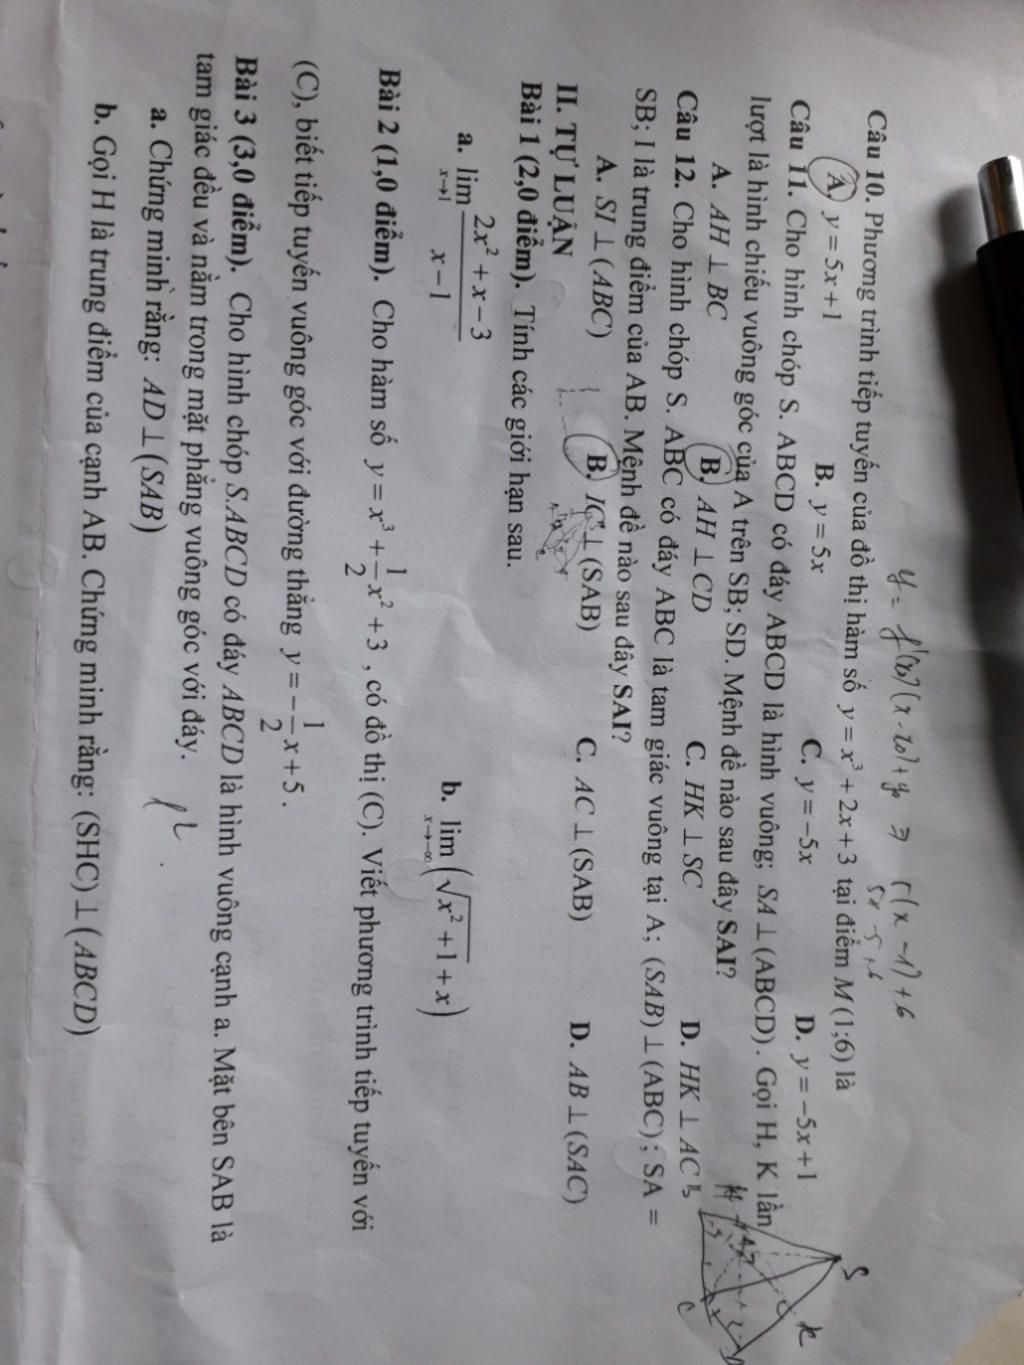 y = f'(x₀)(x - x₀) + y₀ ⇒ 5(x - 1) + 6
5x - 5 + 6
Câu 10. Phương trình tiếp tuyến của đồ thị hàm số y = x³ + 2x + 3 tại điểm M(1;6) là
A. y = 5x + 1 B. y = 5x C. y = -5x D. y = -5x + 1
Câu 11. Cho hình chóp S. ABCD có đáy ABCD là hình vuông; SA ⊥ (ABCD). Gọi H, K lần
lượt là hình chiếu vuông góc của A trên SB; SD. Mệnh đề nào sau đây SAI?
A. AH ⊥ BC B. AH ⊥ CD C. HK ⊥ SC D. HK ⊥ AC
Câu 12. Cho hình chóp S. ABC có đáy ABC là tam giác vuông tại A; (SAB) ⊥ (ABC); SA =
SB; I là trung điểm của AB. Mệnh đề nào sau đây SAI?
A. SI ⊥ (ABC) B. IC ⊥ (SAB) C. AC ⊥ (SAB) D. AB ⊥ (SAC)
II. TỰ LUẬN
Bài 1 (2,0 điểm). Tính các giới hạn sau.
a. lim x→1 (2x² + x - 3)/(x - 1) b. lim x→-∞ (√(x² + 1) + x)
Bài 2 (1,0 điểm). Cho hàm số y = x³ + 1/2 x² + 3 , có đồ thị (C). Viết phương trình tiếp tuyến với
(C), biết tiếp tuyến vuông góc với đường thẳng y = -1/2 x + 5 .
Bài 3 (3,0 điểm). Cho hình chóp S.ABCD có đáy ABCD là hình vuông cạnh a. Mặt bên SAB là
tam giác đều và nằm trong mặt phẳng vuông góc với đáy.
a. Chứng minh rằng: AD ⊥ (SAB)
b. Gọi H là trung điểm của cạnh AB. Chứng minh rằng: (SHC) ⊥ (ABCD)
S
K
H
B
C
D